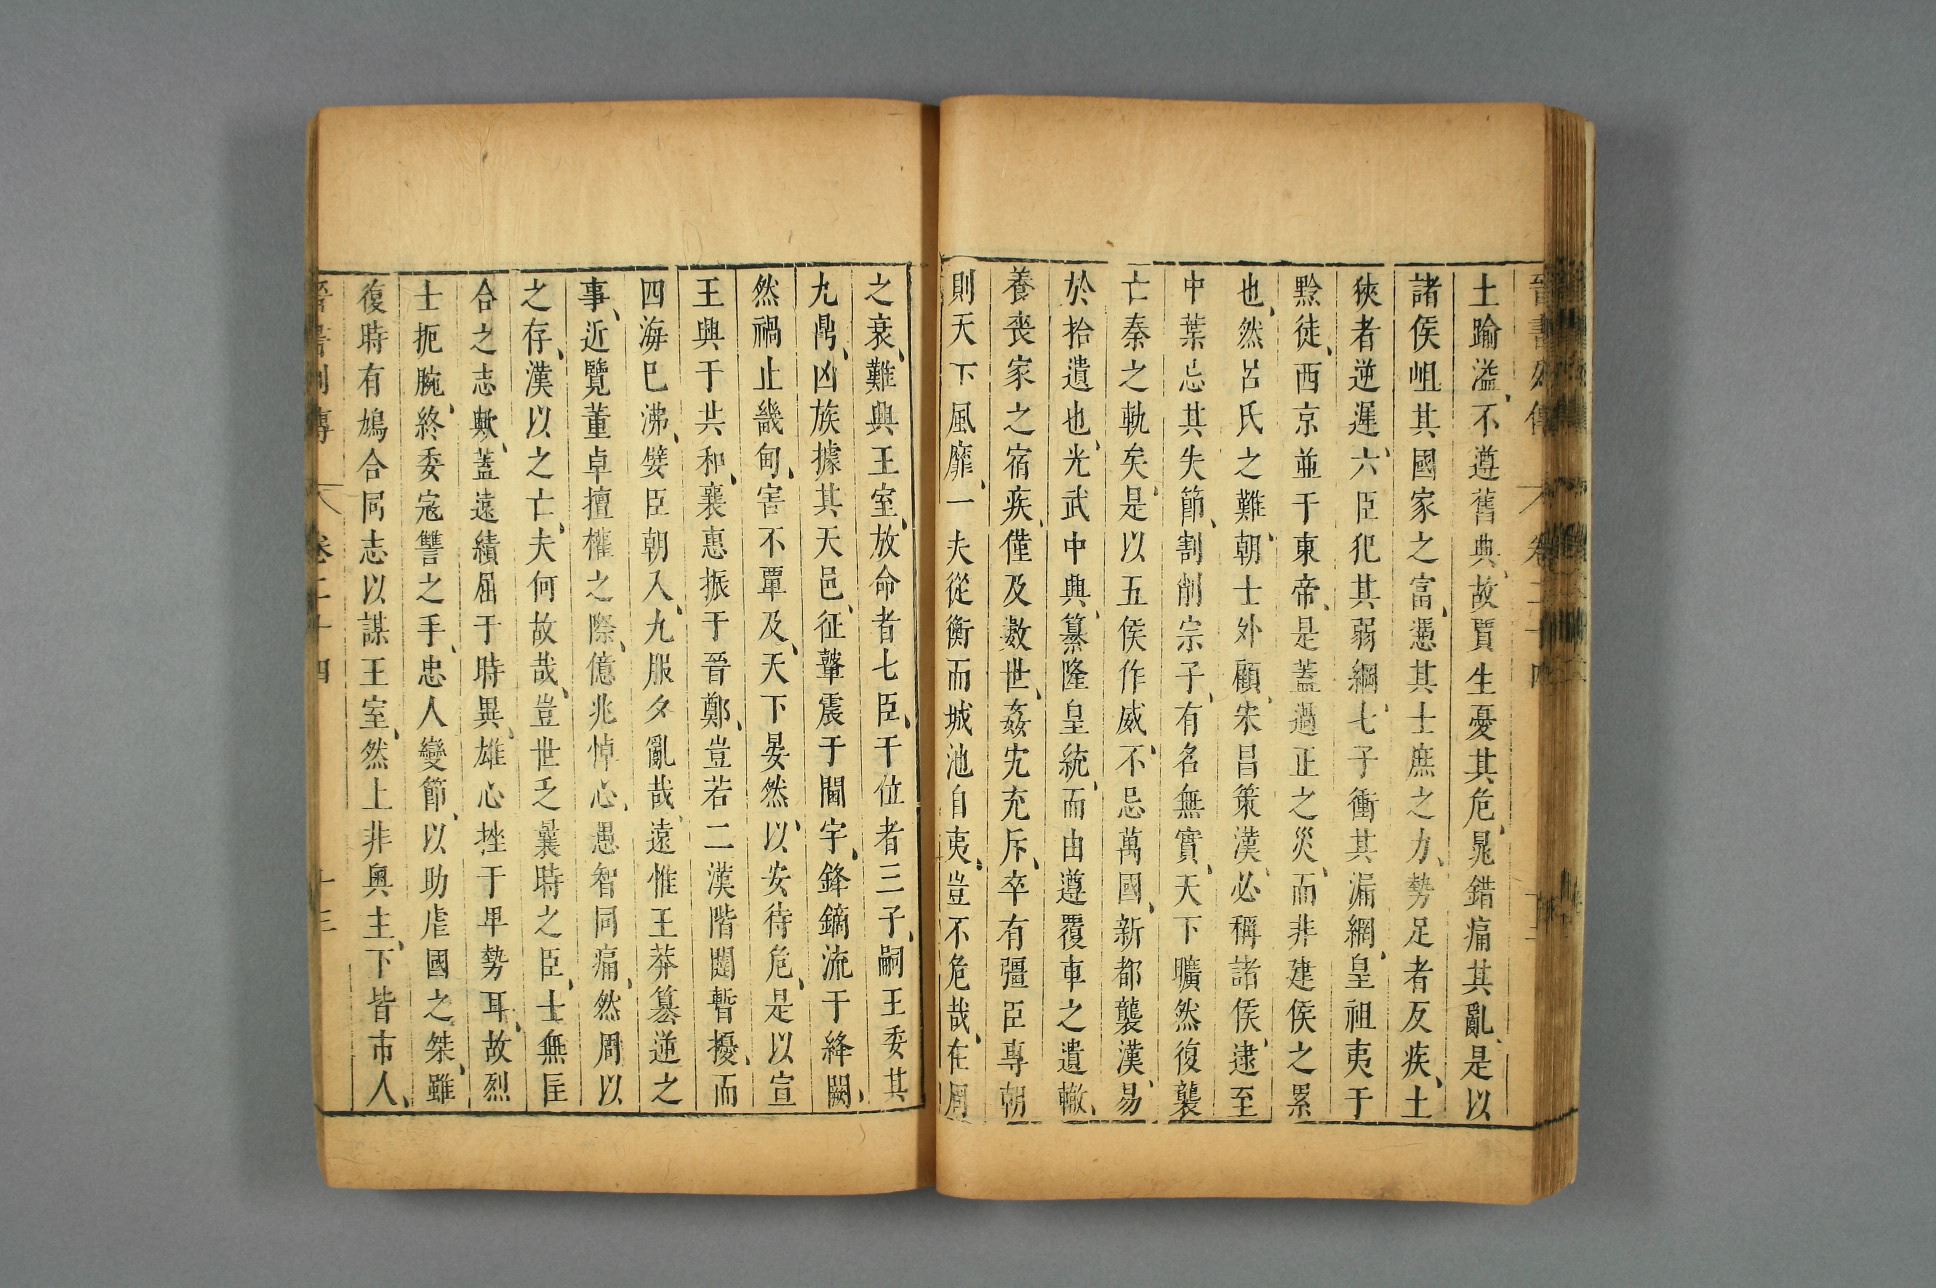 晉書列傳 卷二十四
土踰溢、不遵舊典、故賈生憂其危、晁錯痛其亂、是以
諸侯岨其國家之富、憑其士庶之力、勢足者反疾、土
狹者逆遲、六臣犯其弱綱、七子衝其漏網、皇祖夷于
黥徒、西京並于東帝、是蓋過正之災、而非建侯之累
也、然呂氏之難、朝士外顧、宋昌策漢、必稱諸侯、逮至
中葉忌其失節、割削宗子、有名無實、天下曠然復襲
亡秦之軌矣、是以五侯作威、不忌萬國、新都襲漢、易
於拾遺也、光武中興、纂隆皇統、而由遵覆車之遺轍、
養喪家之宿疾、僅及數世、姦宄充斥、卒有彊臣專朝
則天下風靡、一夫從衡而城池自夷、豈不危哉、在周
之衰、難興王室、放命者七臣、干位者三子、嗣王委其
九鼎、凶族據其天邑、征鼙震于閫宇、鋒鏑流于絳闕、
然禍止畿甸、害不覃及、天下晏然、以安待危、是以宣
王興于共和、襄惠振于晉鄭、豈若二漢階闥暫擾、而
四海已沸、嬖臣朝入、九服夕亂哉、遠惟王莽篡逆之
事、近覽董卓擅權之際、億兆悼心、愚智同痛、然周以
之存、漢以之亡、夫何故哉、豈世乏曩時之臣、士無匡
合之志歟、蓋遠績屈于時異、雄心挫于卑勢耳、故烈
士扼腕、終委寇讐之手、忠人變節、以助虐國之桀、雖
復時有鳩合同志以謀王室、然上非奧主、下皆市人、
晉書列傳 卷二十四 十三